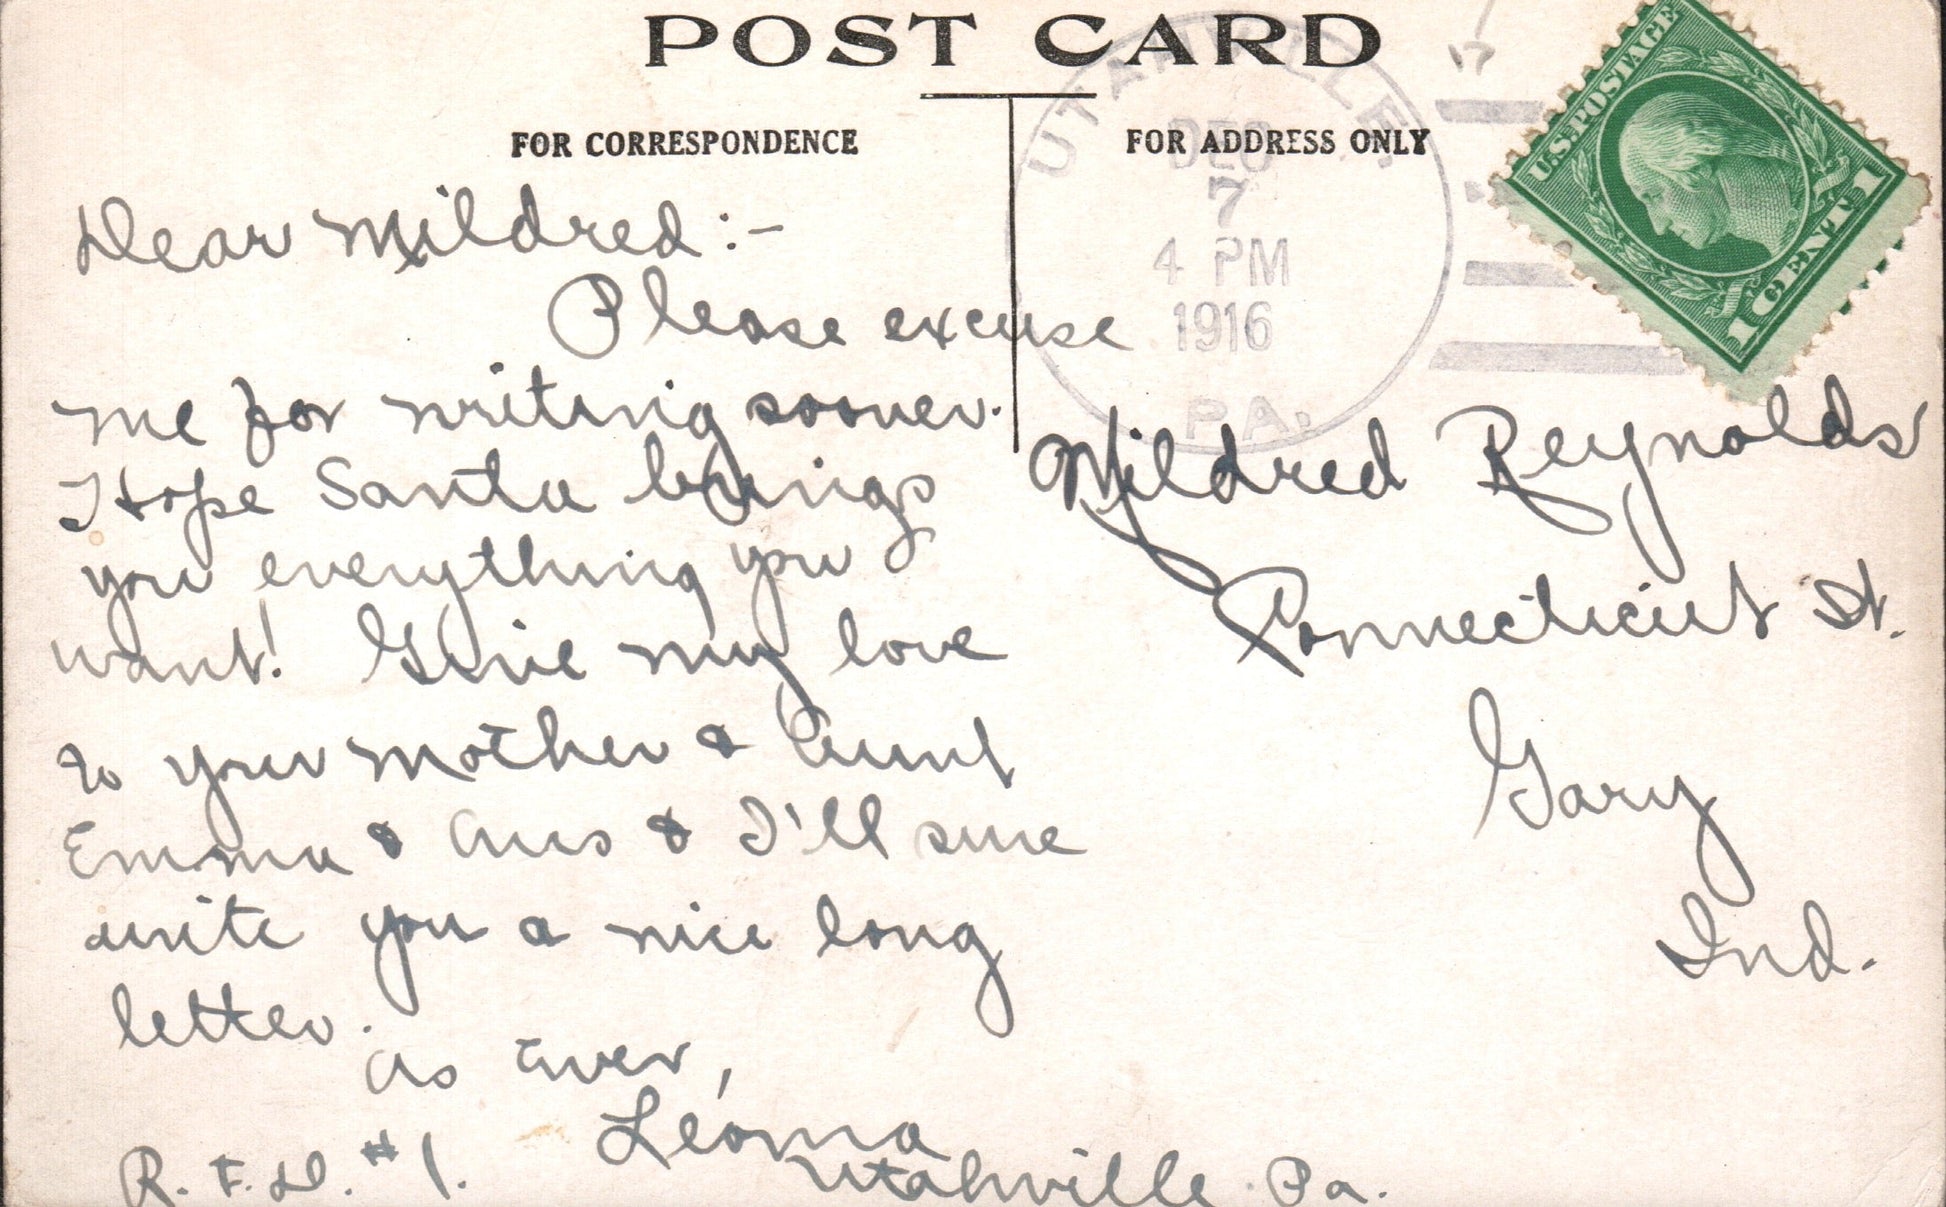 POST CARD
FOR CORRESPONDENCE
FOR ADDRESS ONLY
UTAHVILLE,
DEC
7
4 PM
1916
PA.
U.S. POSTAGE
1 CENT 1
17
Dear Mildred:-
Please excuse
me for writing sooner.
I Hope Santa brings
you everything you
want! Give my love
to your Mother & Aunt
Emma & Aus & I'll sure
write you a nice long
letter.
As Ever,
Leona
R.F.D. #1. Utahville. Pa.
Mildred Reynolds
Connecticut St.
Gary
Ind.